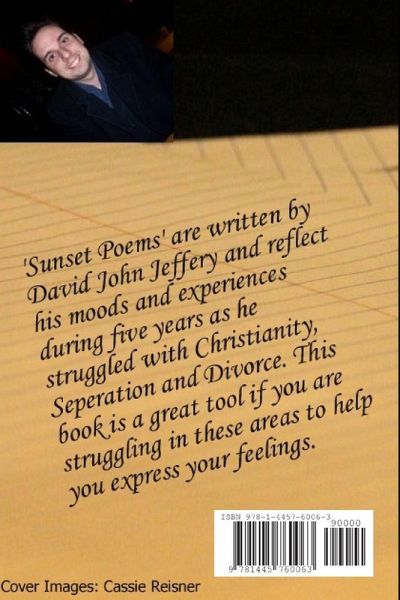 'Sunset Poems' are written by
David John Jeffery and reflect
his moods and experiences
during five years as he
struggled with Christianity,
Seperation and Divorce. This
book is a great tool if you are
struggling in these areas to help
you express your feelings.
ISBN 978-1-4457-6006-3
90000
9 781445 760063
Cover Images: Cassie Reisner